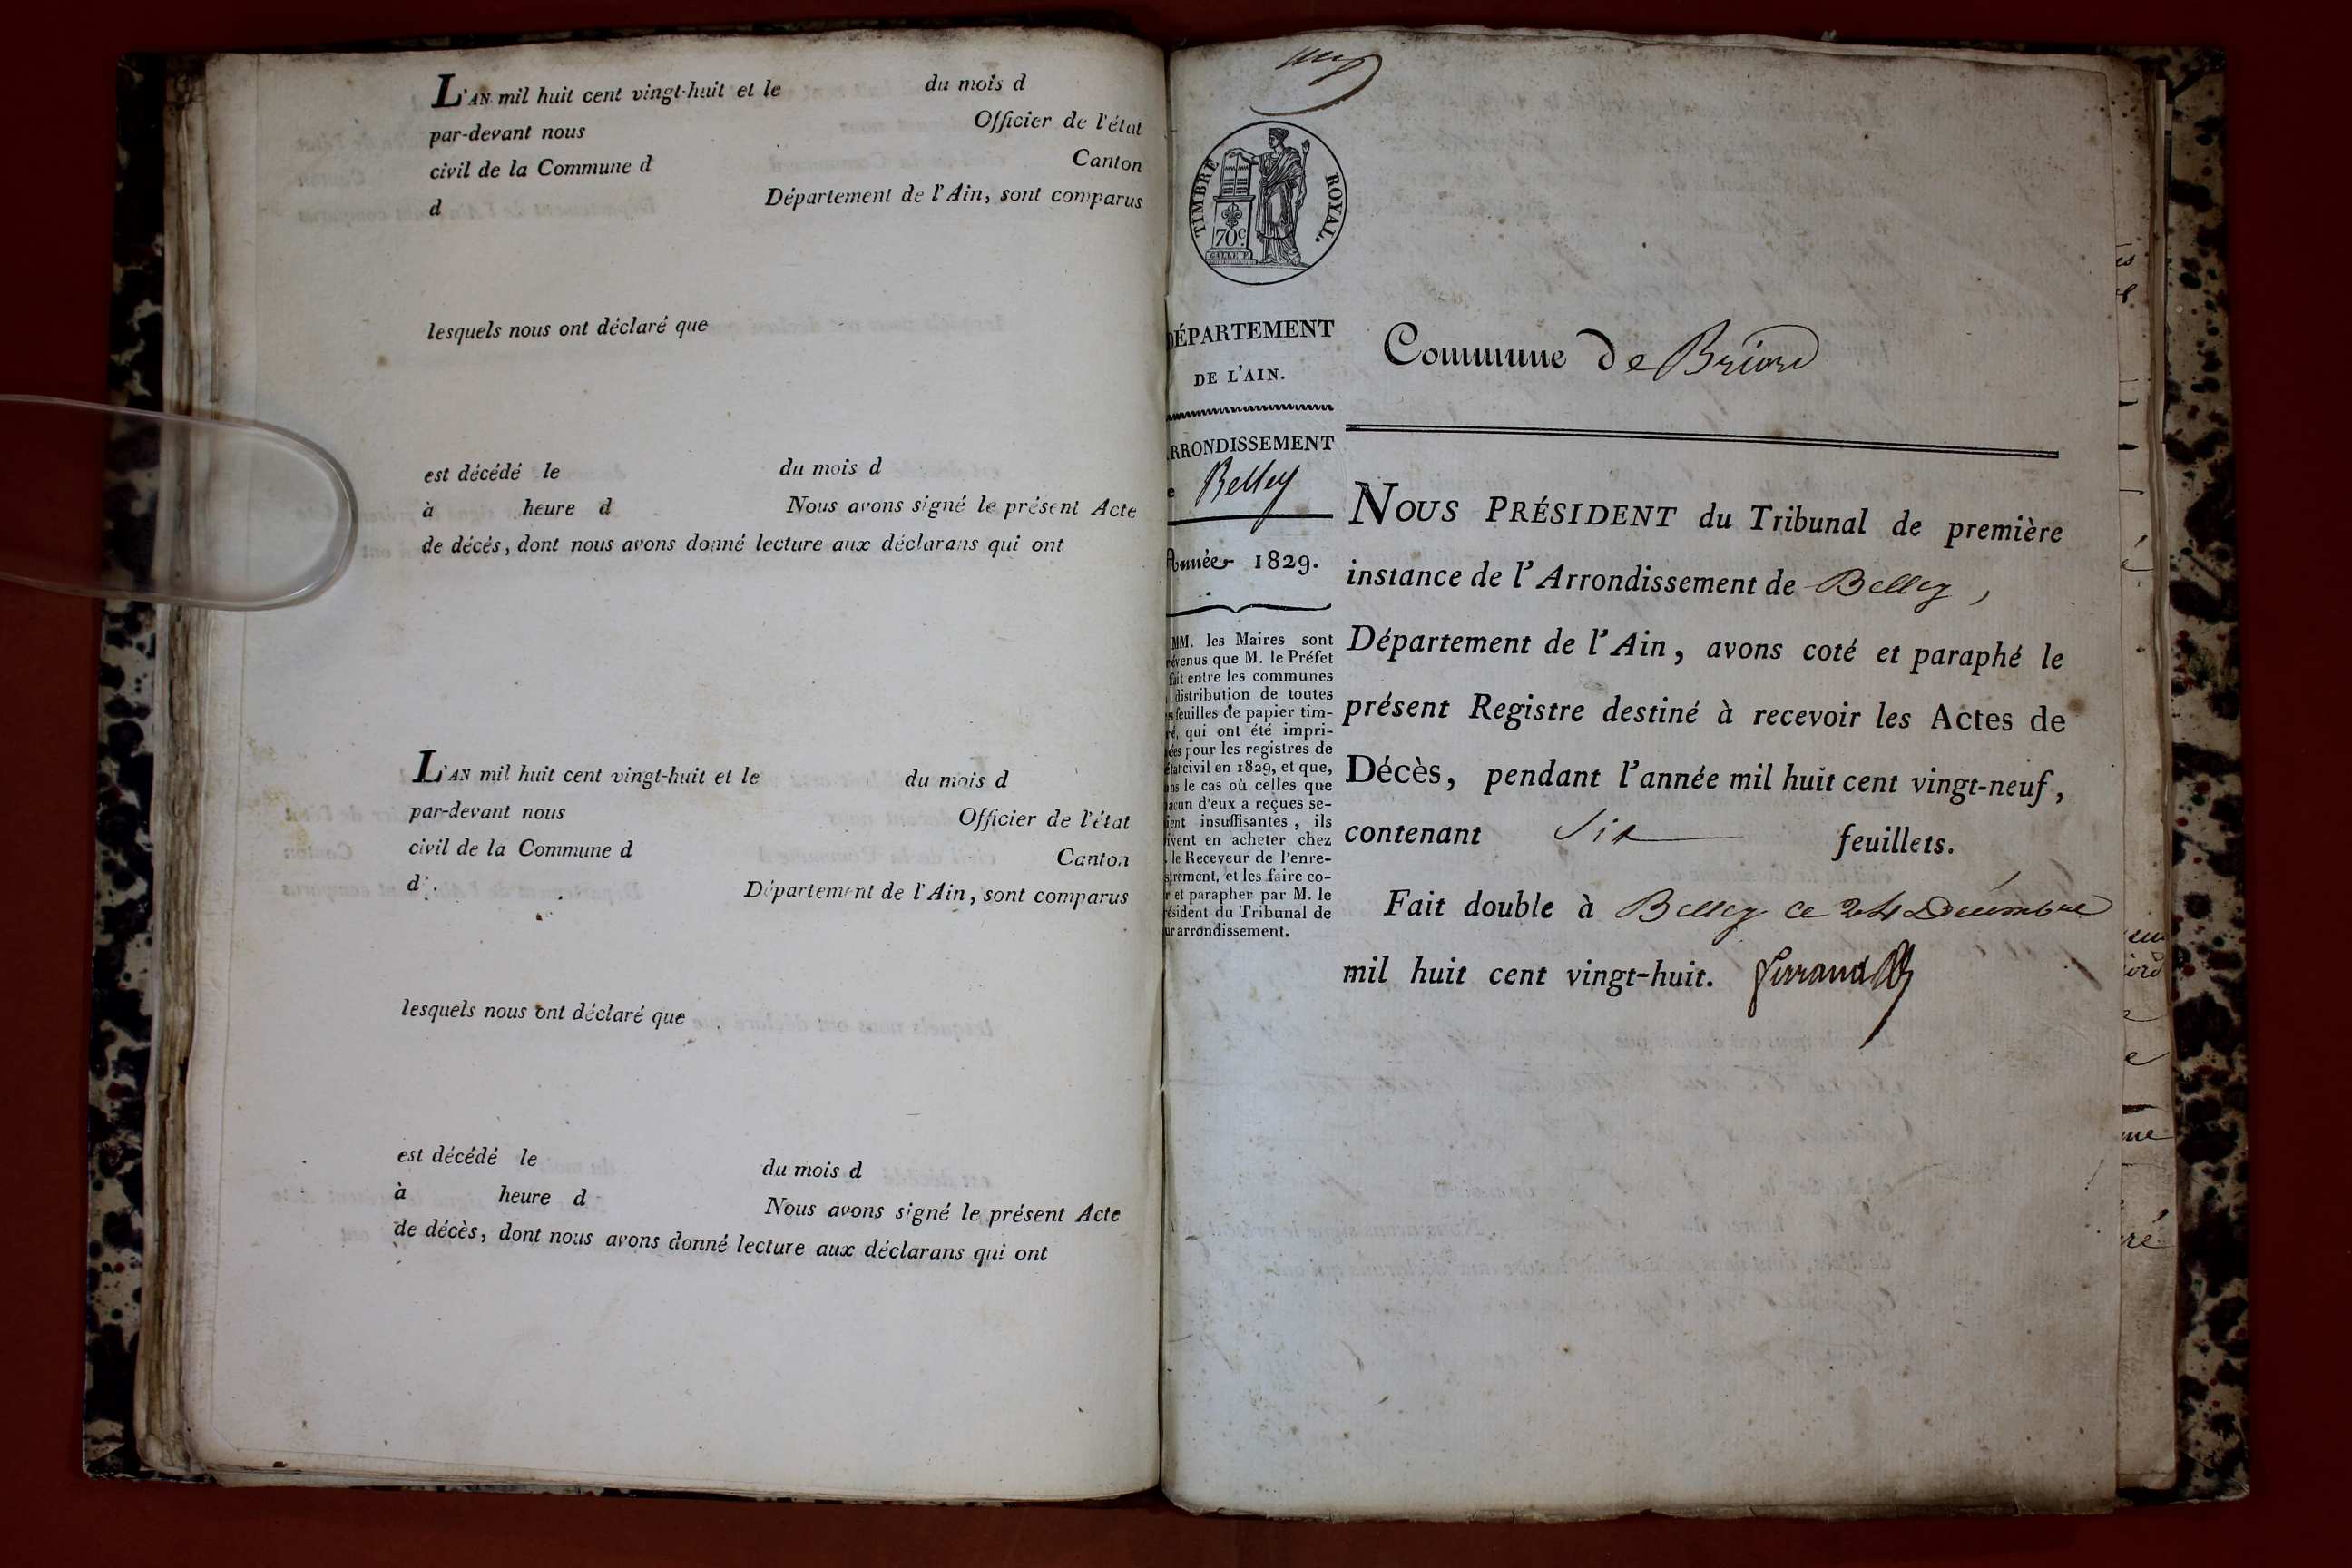 L'AN mil huit cent vingt-huit et le du mois d
par-devant nous Officier de l'état
civil de la Commune d Canton
d Département de l'Ain, sont comparus
lesquels nous ont déclaré que
est décédé le du mois d
à heure d Nous avons signé le présent Acte
de décés, dont nous avons donné lecture aux déclarans qui ont
L'AN mil huit cent vingt-huit et le du mois d
par-devant nous Officier de l'état
civil de la Commune d Canton
d Département de l'Ain, sont comparus
lesquels nous ont déclaré que
est décédé le du mois d
à heure d Nous avons signé le présent Acte
de décès, dont nous avons donné lecture aux déclarans qui ont
TIMBRE ROYAL.
70c.
DÉPARTEMENT
DE L'AIN.
RRONDISSEMENT
e Belley
Année 1829.
MM. les Maires sont
révenus que M. le Préfet
fait entre les communes
distribution de toutes
s feuilles de papier tim-
ré, qui ont été impri-
ées pour les registres de
état civil en 1829, et que,
ans le cas où celles que
acun d'eux a reçues se-
ient insuffisantes, ils
ivent en acheter chez
. le Receveur de l'enre-
strement, et les faire co-
r et parapher par M. le
résident du Tribunal de
ur arrondissement.
Commune de Briord
NOUS PRÉSIDENT du Tribunal de première
instance de l'Arrondissement de Belley,
Département de l'Ain, avons coté et paraphé le
présent Registre destiné à recevoir les Actes de
Décès, pendant l'année mil huit cent vingt-neuf,
contenant Six feuillets.
Fait double à Belley ce 24 Décembre
mil huit cent vingt-huit.